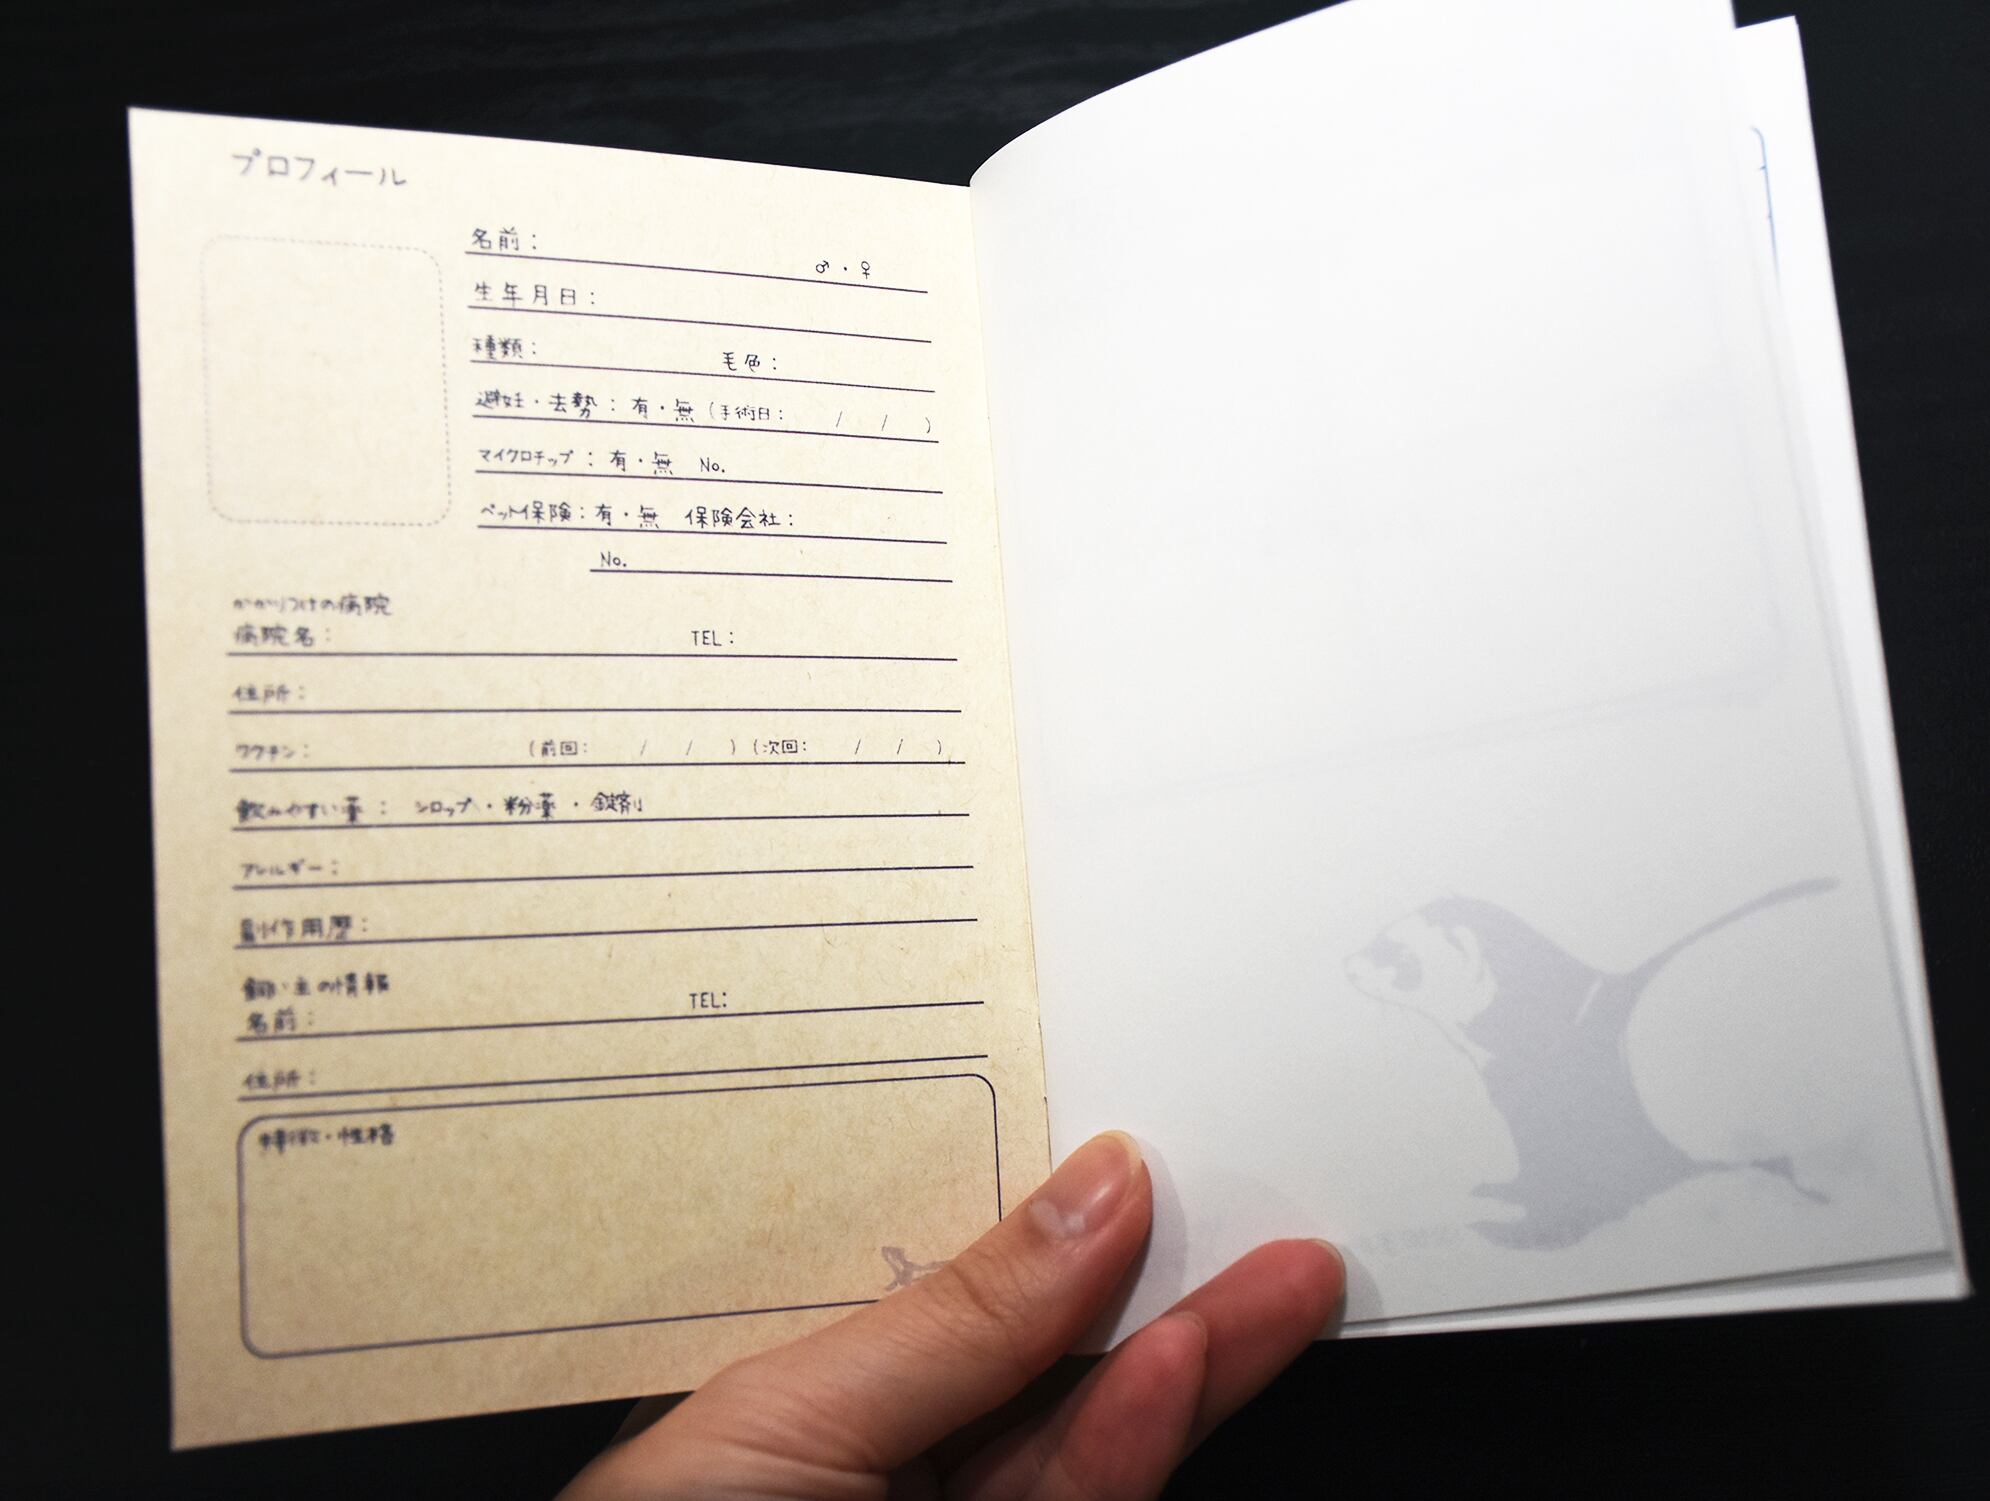 プロフィール
名前： ♂・♀
生年月日：
種類： 毛色：
避妊・去勢：有・無（手術日： / / ）
マイクロチップ：有・無 No.
ペット保険：有・無 保険会社：
No.
かかりつけの病院
病院名： TEL：
住所：
ワクチン： （前回： / / ）（次回： / / ）
飲みやすい薬： シロップ・粉薬・錠剤
アレルギー：
副作用歴：
飼い主の情報
名前： TEL：
住所：
特徴・性格